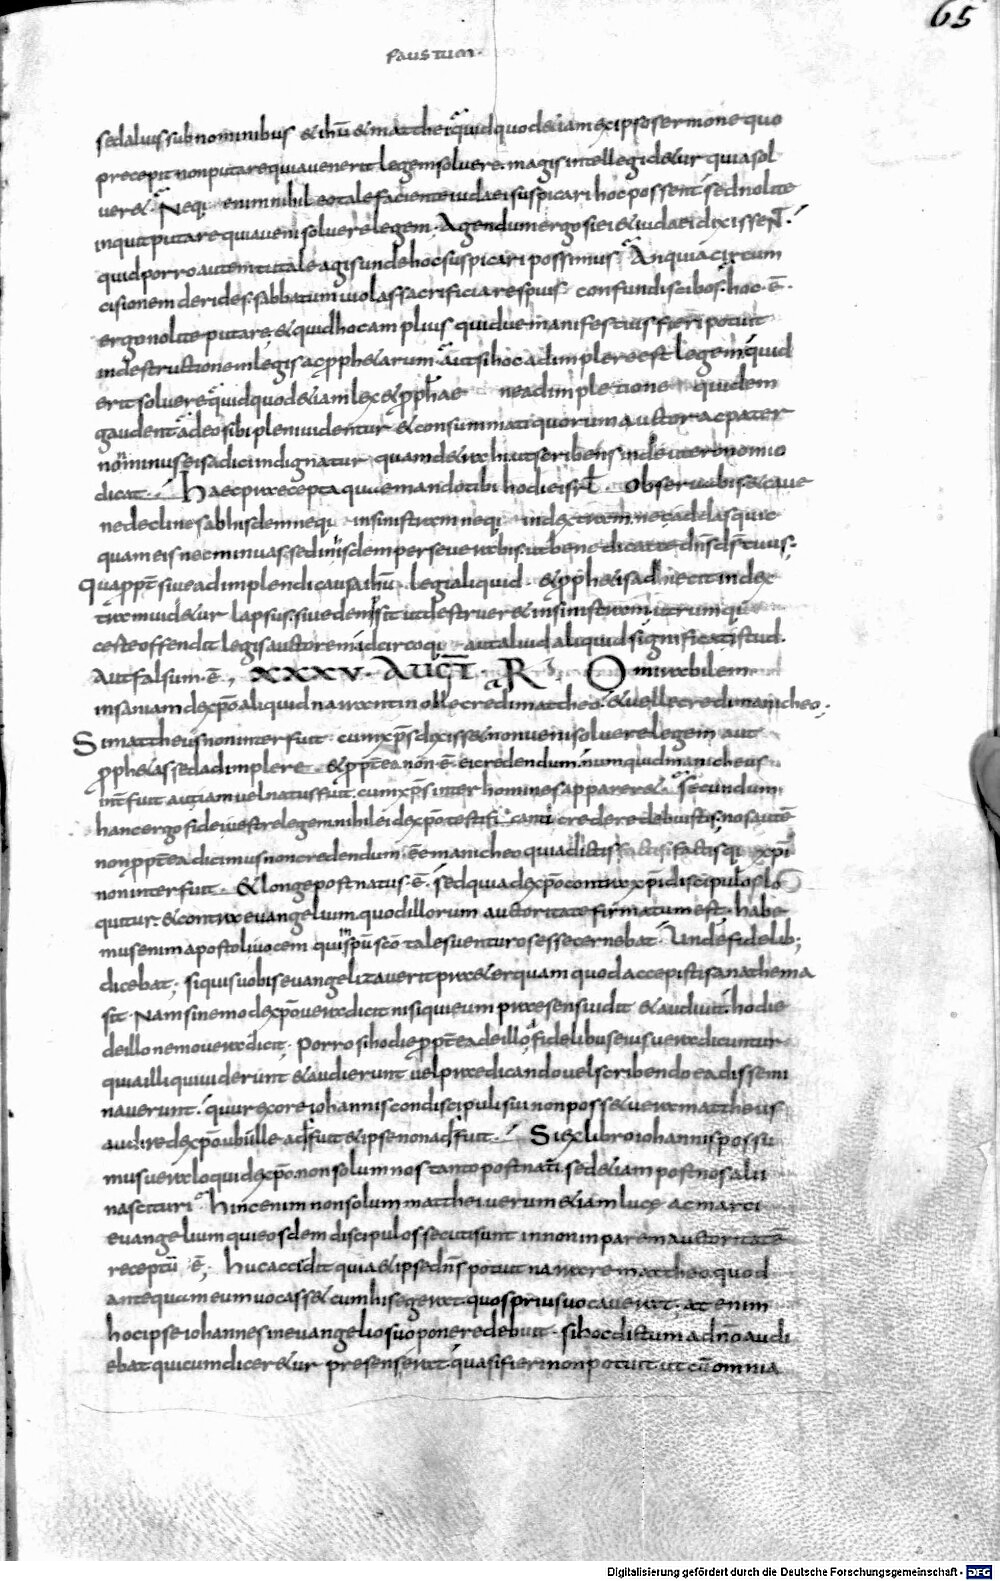 65
FAUSTUM.
sed alius sub nominibus & ihū & matthei quid quod &iam ex ipso sermone quo
precepit non putare quia venerit legem solvere. magis intellegi d&ur quia sol
ver&. Neq; enim nihil eo tale faciente iudaei suspicari hoc possent sed nolite
inquit putare quia veni solvere legem. Agendum ergo si ei & iudaei dixissent.
quid porro autem tu tale agis unde hoc suspicari possimus An quia circum
cisionem derides. sabbatum violas sacrificia respuis confundis cibos. hoc. ē.
ergo nolite putare. & quid hoc amplius quidve manifestius fieri potuit
in destructionem legis ac proph&arum. aut si hoc adimplere est legem quid
erit solvere quid quod &iam lex & prophae ne adimpletione quidem
gaudent adeo sibi pleni videntur & consummati quorum auctor ac pater
non minus eis adici indignatur quam d&rahi ut scribens in deuteronomio
dicat. Haec praecepta quae mando tibi hodie isrl. observabis & cave
ne declines ab hisdem neq; in sinistram neq; in dextram. nec addas quic
quam eis nec minuas. sed in iisdem perseverabis. ut benedicat te dn̄s ds̄ tuus.
Quapropt̄ sive adimplendi causa ihū legi aliquid & proph&is adiecit in dex
tram vid&ur lapsus. sive dempsit ut destruer& in sinistram. utrumq;
certe offendit legis auctorem idcircoq; aut aliud aliquid significat istud.
Aut falsum. ē, XXXV. AUGT̄. R Omirabilem
insaniam de xp̄o aliquid narranti nolle credi mattheo. & velle credi manicheo;
Si mattheus non interfuit. cum xp̄s dixiss& non veni solvere legem aut
proph&as sed adimplere. & propt̄ea non. ē. ei credendum. numquid manicheus
int̄fuit aut iam vel natus fuit. cum xp̄s inter homines apparer&. Secundum
hanc ergo fidei vestre legem nihil ei de xp̄o testificanti credere debuistis. nos autē
non propt̄ea dicimus non credendum. ēe manicheo quia dictis factisq; xp̄i
non interfuit. & longe post natus. ē. sed quia de xp̄o contra xp̄i discipulos lo
quitur. & contra evangelium quod illorum auctoritate firmatum est. habe
mus enim apostoli vocem qui in sp̄u sc̄o tales venturos esse cernebat. Unde fidelib;
dicebat; si quis vobis evangelizaverit praet&erquam quod accepistis anathema
sit. Nam si nemo de xp̄o vera dicit nisi qui eum praesens vidit & audivit. hodie
de illo nemo vera dicit. Porro si hodie propt̄ea de illo fidelibus eius vera dicuntur
quia illi qui viderunt & audierunt vel praedicando vel scribendo ea dissemi
naverunt. qur ex ore iohannis condiscipuli sui non poss& vera mattheus
audire de xp̄o ubi ille adfuit & ipse non adfuit. Si ex libro iohannis possu
mus vera loqui de xp̄o. non solum nos tanto post nati sed &iam post nos alii
nascituri Hinc enim non solum matthei verum &iam lucę ac marci
evangelium qui eosdem discipulos secuti sunt in non inparem auctoritatē
receptū ē; Huc accidit quia & ipse dn̄s potuit narrare mattheo quod
antequam eum vocass& cum his egerat. quos prius vocaverat. at enim
hoc ipse iohannes in evangelio suo ponere debuit. si hoc dictum a dn̄o audi
ebat qui cum dicer&ur presens erat quasi fieri non potuit ut cū omnia
Digitalisierung gefördert durch die Deutsche Forschungsgemeinschaft - DFG